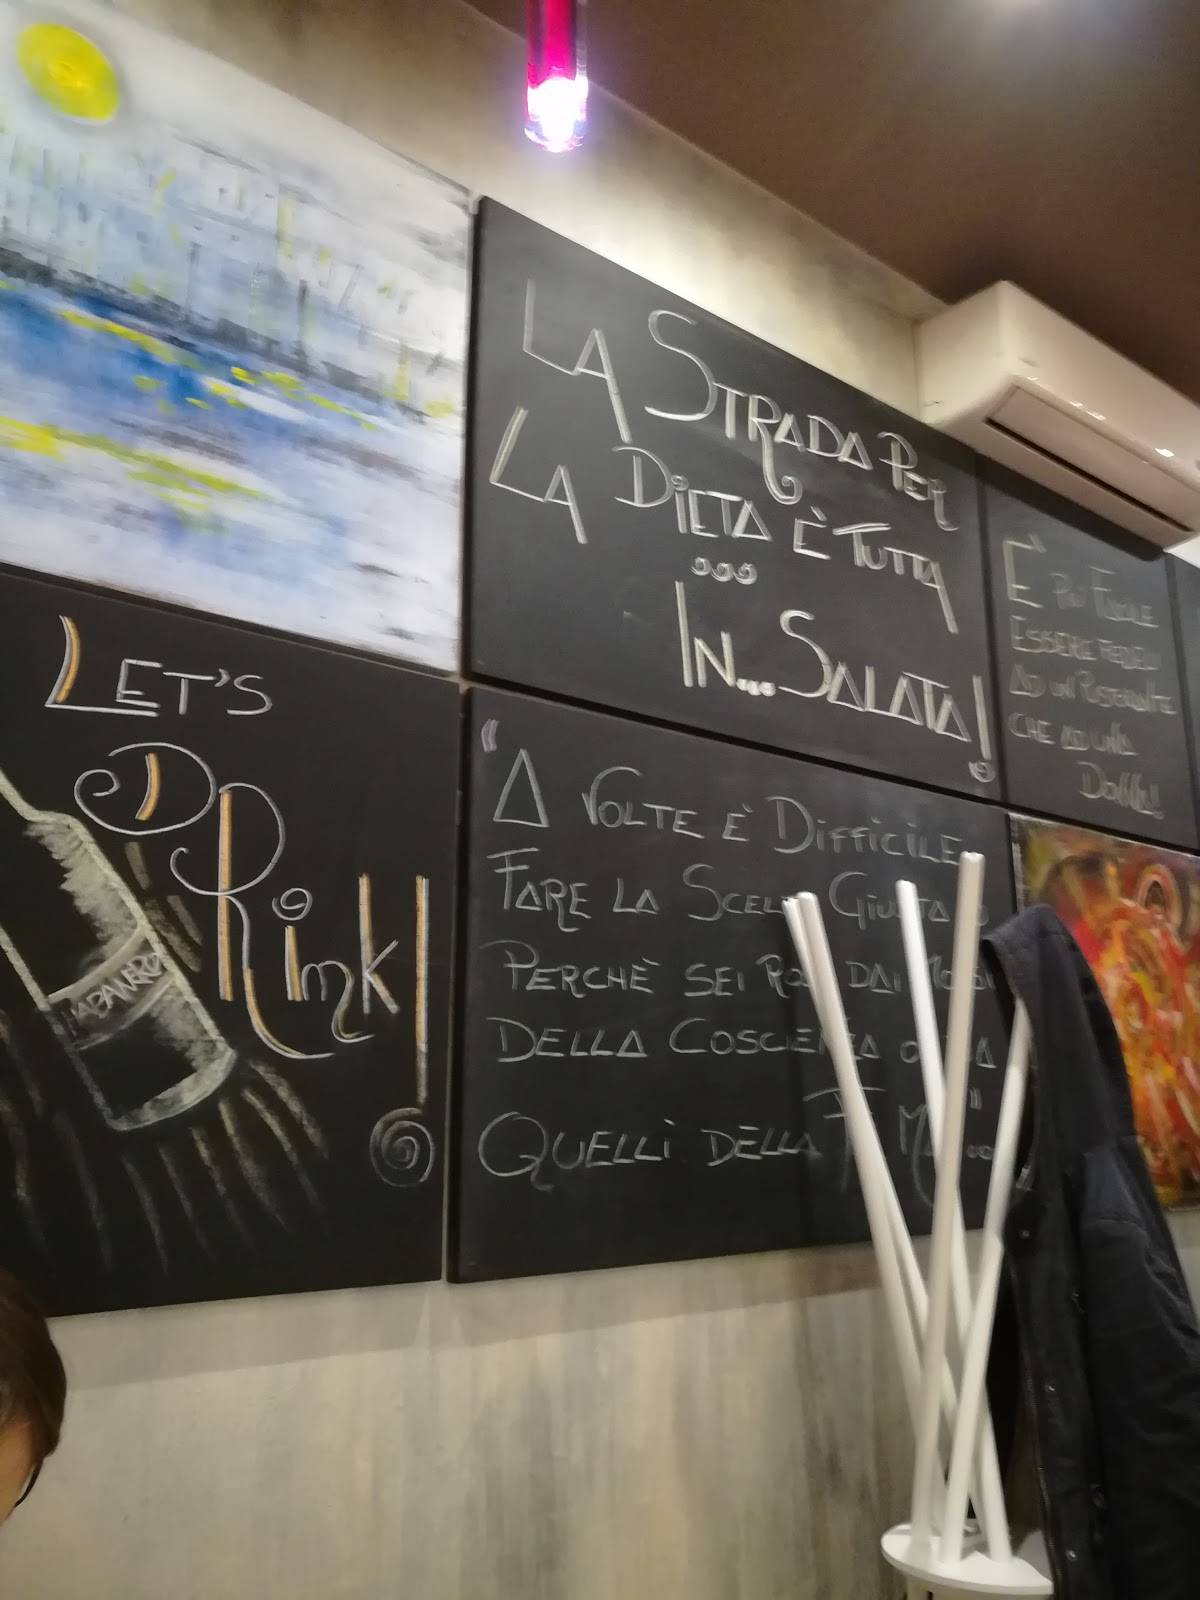 LA STRADA PER
LA DIETA È TUTTA
...
IN... SALATA!
È PIÙ FACILE
ESSERE FEDELI
AD UN RISTORANTE
CHE AD UNA
DONNA!!
LET'S
DRink!
"A VOLTE È DiFFiCiLE
FARE LA GIUSTA
PERCHÈ SEI DAI
DELLA COSCIENZA O DA
QUELLi DELLA